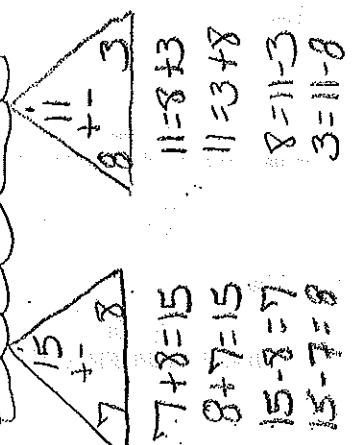 15
+-
7 8
7+8=15
8+7=15
15-8=7
15-7=8
11
+-
8 3
11=8+3
11=3+8
8=11-3
3=11-8